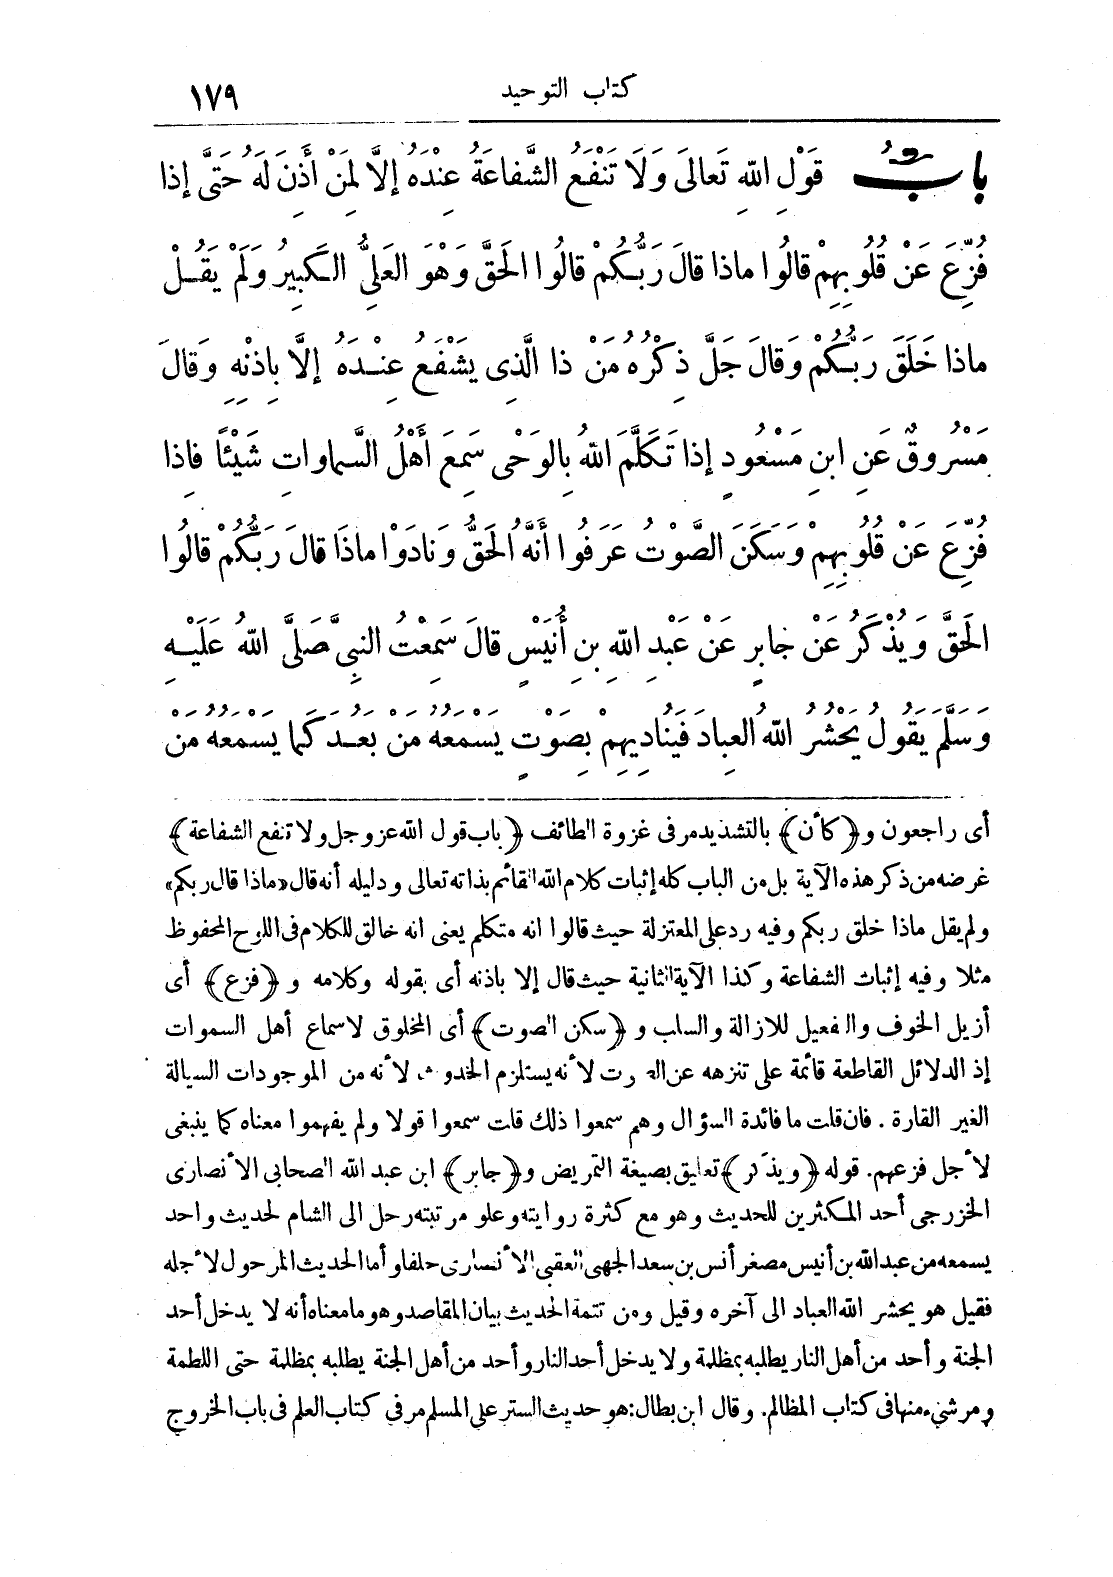 كتاب التوحيد ١٧٩
بابُ قَوْلِ اللّٰهِ تَعالىَ وَلَا تَنْفَعُ الشَّفاعَةُ عِنْدَهُ إلاَّ لِمَنْ أَذِنَ لَهُ حَتَّى إذا
فُزِّعَ عَنْ قُلُوبِهِمْ قالُوا ماذا قالَ رَبُّكُمْ قالُوا الحَقَّ وَهْوَ العَلِىُّ الكَبِيرُ وَلَمْ يَقُلْ
ماذا خَلَقَ رَبُّكُمْ وَقالَ جَلَّ ذِكْرُهُ مَنْ ذا الَّذِى يَشْفَعُ عِنْدَهُ إلاَّ بِاذْنِهِ وَقالَ
مَسْرُوقٌ عَنِ ابنِ مَسْعُودٍ إذا تَكَلَّمَ اللّٰهُ بِالوَحْىِ سَمِعَ أَهْلُ السَّماوات شَيْئًا فاذا
فُزِّعَ عَنْ قُلُوبِهِمْ وَسَكَنَ الصَّوْتُ عَرَفُوا أنَّهُ الحَقُّ وَنادَوْا ماذَا قالَ رَبُّكُمْ قالُوا
الحَقَّ وَيُذْكَرُ عَنْ جابِرٍ عَنْ عَبْدِ اللّٰهِ بنِ أُنَيْسٍ قالَ سَمِعْتُ النبِىَّ صَلَّى اللّٰهُ عَلَيْهِ
وَسَلَّمَ يَقُولُ يَحْشُرُ اللّٰهُ العِبادَ فَيُنادِيهِمْ بِصَوْتٍ يَسْمَعُهُ مَنْ بَعُدَ كَما يَسْمَعُهُ مَنْ
أى راجعون و﴿كأن﴾ بالتشديد مر فى غزوة الطائف ﴿باب قول الله عز وجل ولا تنفع الشفاعة﴾
غرضه من ذكر هذه الآية بل من الباب كله إثبات كلام الله القائم بذاته تعالى ودليله أنه قال «ماذا قال ربكم»
ولم يقل ماذا خلق ربكم وفيه رد على المعتزلة حيث قالوا انه متكلم يعنى انه خالق للكلام فى اللوح المحفوظ
مثلا وفيه إثبات الشفاعة وكذا الآية الثانية حيث قال إلا باذنه أى بقوله وكلامه و﴿فزع﴾ أى
أزيل الخوف والتفعيل للازالة والسلب و﴿سكن الصوت﴾ أى المخلوق لاسماع أهل السموات
إذ الدلائل القاطعة قائمة على تنزهه عن الصوت لأنه يستلزم الحدوث لأنه من الموجودات السيالة
الغير القارة . فان قلت ما فائدة السؤال وهم سمعوا ذلك قلت سمعوا قولا ولم يفهموا معناه كما ينبغى
لأجل فزعهم. قوله ﴿ويذكر﴾ تعليق بصيغة التمريض و﴿جابر﴾ ابن عبد الله الصحابى الأنصارى
الخزرجى أحد المكثرين للحديث وهو مع كثرة روايته وعلو مرتبته رحل الى الشام لحديث واحد
يسمعه من عبد الله بن أنيس مصغر أنس بن سعد الجهى العقبى الأنصارى حلفا وأما الحديث المرحول لأجله
فقيل هو يحشر الله العباد الى آخره وقيل ومن تتمة الحديث بيان المقاصد وهو ما معناه أنه لا يدخل أحد
الجنة وأحد من أهل النار يطلبه بمظلمة ولا يدخل أحد النار وأحد من أهل الجنة يطلبه بمظلمة حتى اللطمة
ومر شىء منها فى كتاب المظالم. وقال ابن بطال: هو حديث الستر على المسلم مر فى كتاب العلم فى باب الخروج